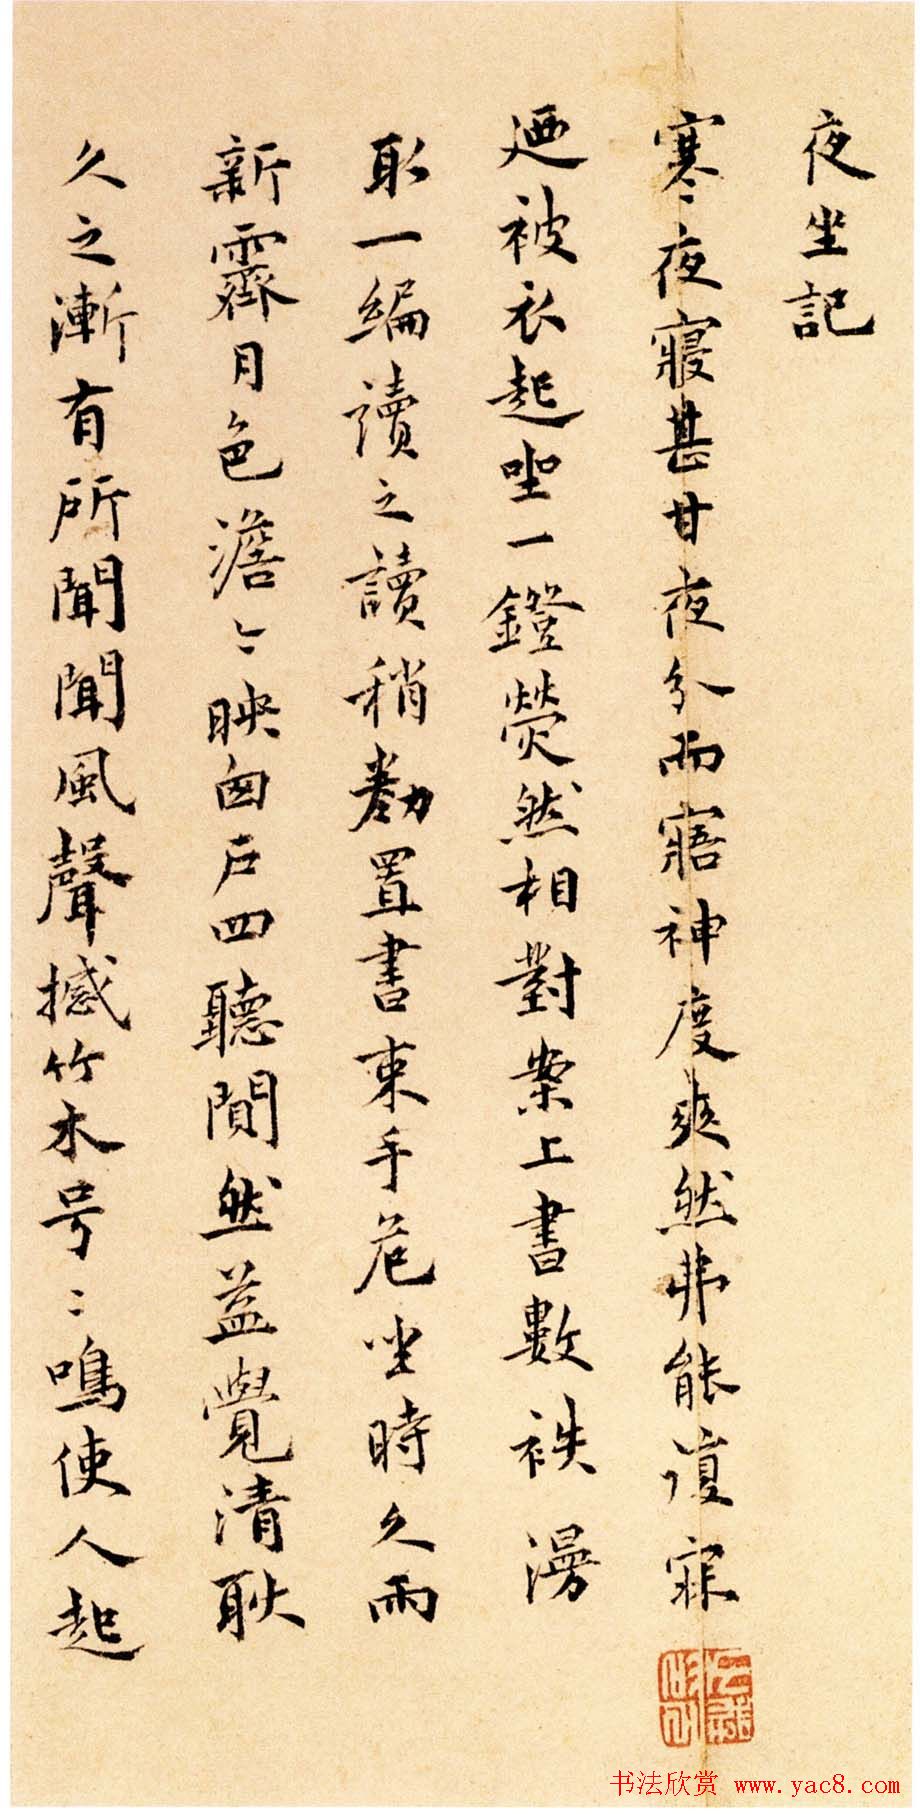 夜坐記
寒夜寢甚甘夜分而寤神度爽然弗能復寐
迺被衣起坐一鐙熒然相對案上書數袠漫
取一編讀之讀稍勌置書束手危坐時久雨
新霽月色澹〻映囱戶四聽闃然益覺清耿
久之漸有所聞聞風聲撼竹木号〻鳴使人起
书法欣赏 www.yac8.com